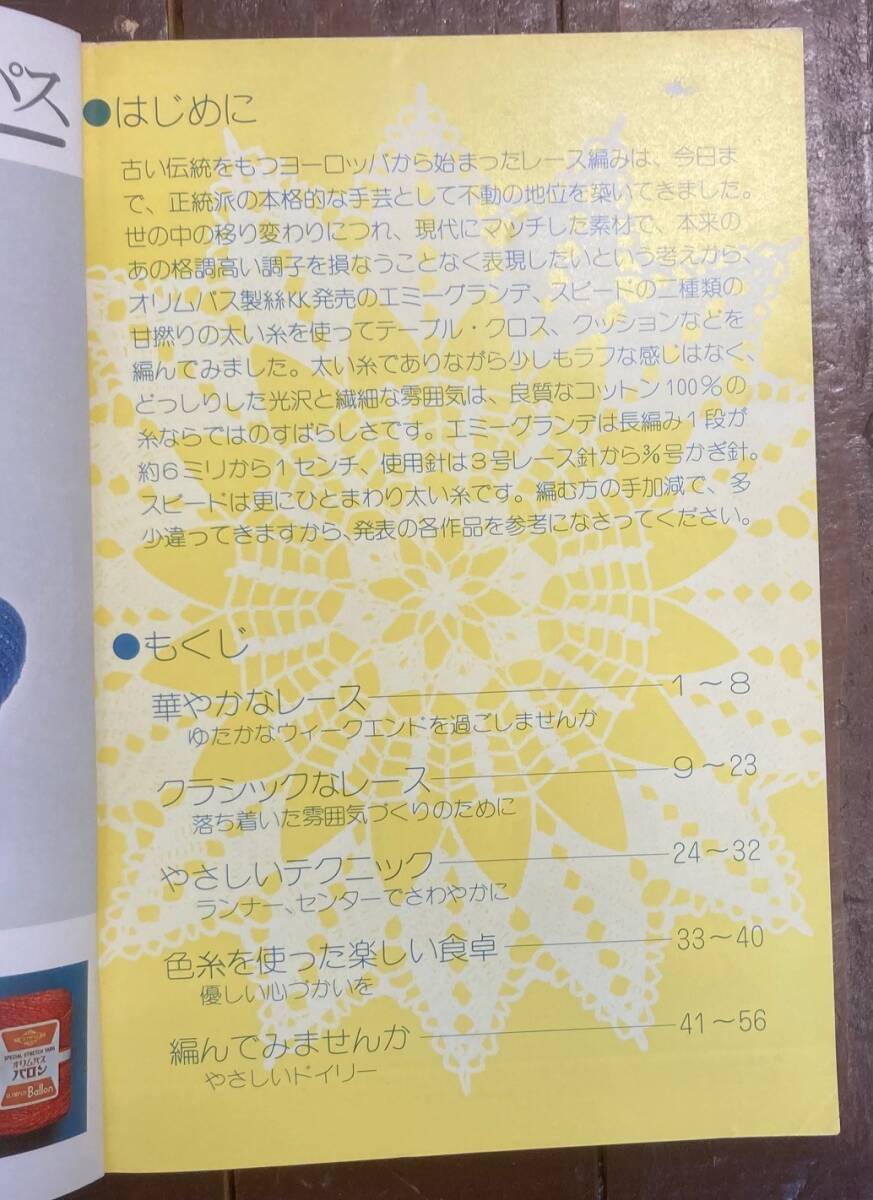 パス
●はじめに
古い伝統をもつヨーロッパから始まったレース編みは、今日ま
で、正統派の本格的な手芸として不動の地位を築いてきました。
世の中の移り変わりにつれ、現代にマッチした素材で、本来の
あの格調高い調子を損なうことなく表現したいという考えから、
オリムパス製絲KK発売のエミーグランデ、スピードの二種類の
甘撚りの太い糸を使ってテーブル・クロス、クッションなどを
編んでみました。太い糸でありながら少しもラフな感じはなく、
どっしりした光沢と繊細な雰囲気は、良質なコットン100%の
糸ならではのすばらしさです。エミーグランデは長編み1段が
約6ミリから1センチ、使用針は3号レース針から3/0号かぎ針。
スピードは更にひとまわり太い糸です。編む方の手加減で、多
少違ってきますから、発表の各作品を参考になさってください。
●もくじ
華やかなレース 1〜8
ゆたかなウィークエンドを過ごしませんか
クラシックなレース 9〜23
落ち着いた雰囲気づくりのために
やさしいテクニック 24〜32
ランナー、センターでさわやかに
色糸を使った楽しい食卓 33〜40
優しい心づかいを
編んでみませんか 41〜56
やさしいドイリー
SPECIAL STRETCH YARN
オリムパス
バロン
Ballon